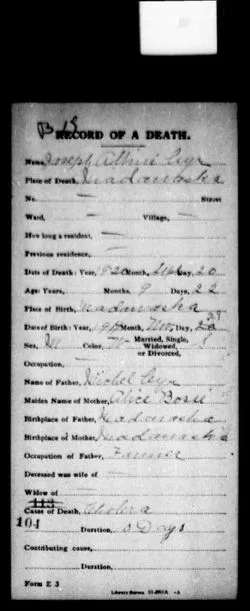 B 13
RECORD OF A DEATH.
Name, Joseph Albini Cyr
Place of Death, Madawaska
No. — Street
Ward, — Village, —
How long a resident, —
Previous residence, —
Date of Death: Year, 1920 Month, Day, 20
Age: Years, Months, 9 Days, 22
Place of Birth, Madawaska
Date of Birth: Year, Month, Nov, Day, 29
Sex, M Color, W Married, Single, Widowed, or Divorced, S
Occupation, —
Name of Father, Michel Cyr
Maiden Name of Mother, Alice
Birthplace of Father, Madawaska
Birthplace of Mother, Madawaska
Occupation of Father, Farmer
Deceased was wife of —
Widow of
113
Cause of Death, Cholera
104
Duration, Days
Contributing cause,
Duration,
Form E 3
Library Bureau